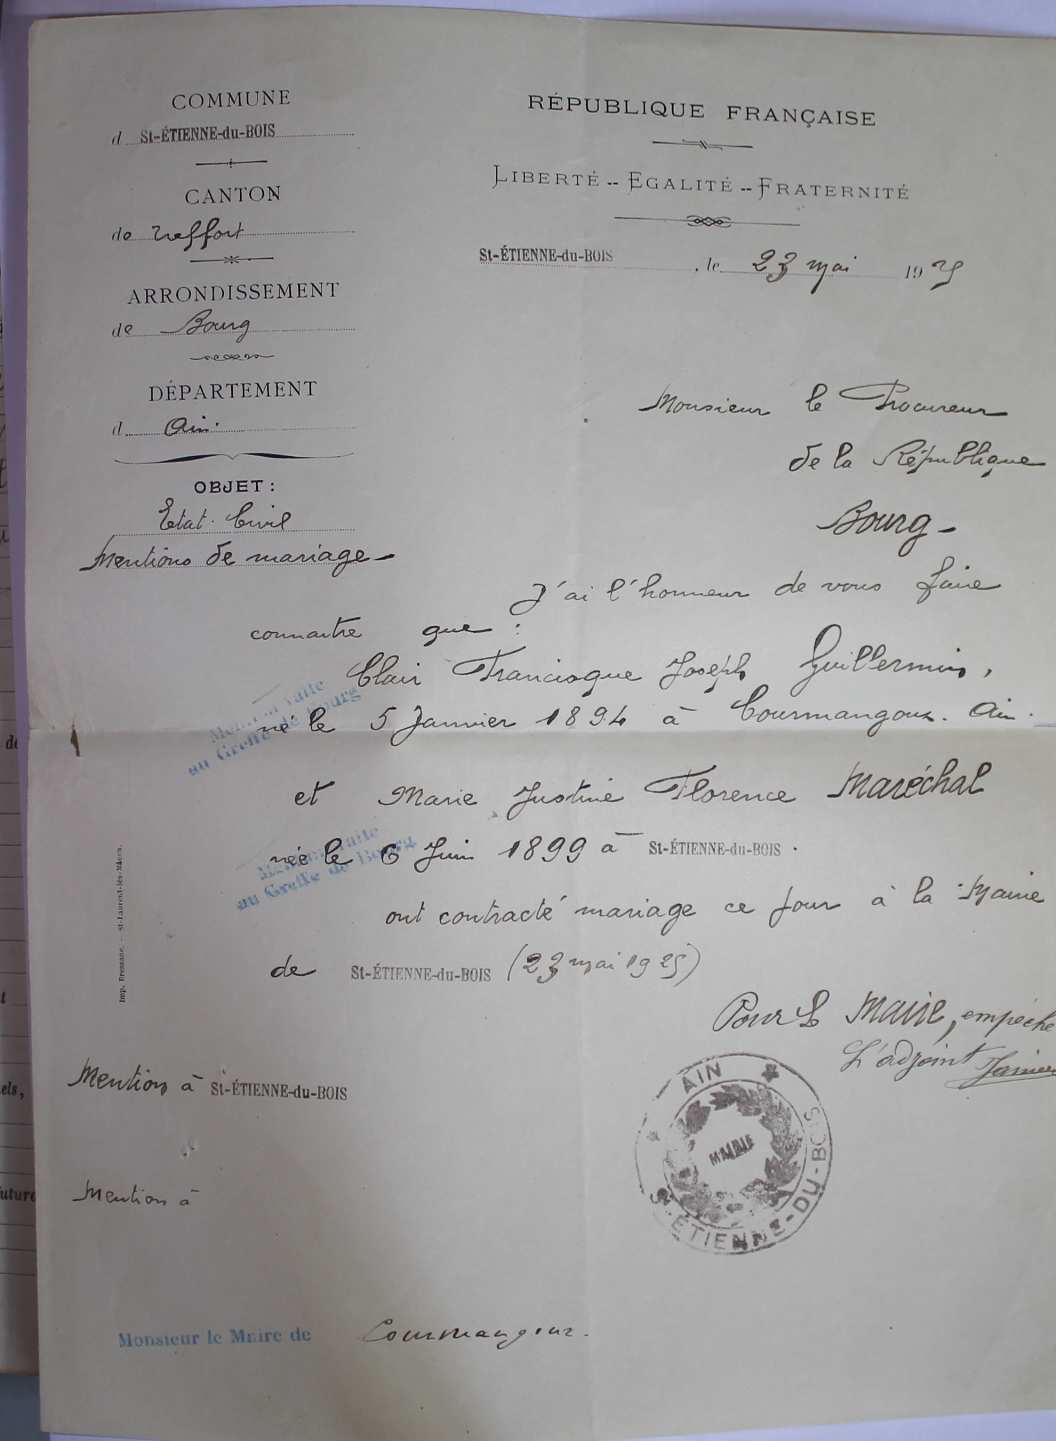 COMMUNE
d St-ÉTIENNE-du-BOIS
CANTON
de Treffort
ARRONDISSEMENT
de Bourg
DÉPARTEMENT
d Ain.
OBJET :
Etat Civil
Mentions de mariage -
RÉPUBLIQUE FRANÇAISE
LIBERTÉ -- EGALITÉ -- FRATERNITÉ
St-ÉTIENNE-du-BOIS, le 23 mai 1925
Monsieur le Procureur
de la République
Bourg -
J'ai l'honneur de vous faire
connaitre que :
Clair Francisque Joseph Guillermin,
né le 5 Janvier 1894 à Courmangoux. Ain.
Mention faite
au Greffe de Bourg
et Marie Justine Florence Maréchal
née le 6 Juin 1899 à St-ÉTIENNE-du-BOIS.
Mention faite
au Greffe de Bourg
ont contracté mariage ce jour à la Mairie
de St-ÉTIENNE-du-BOIS (23 mai 1925)
Pour le Maire, empêché
L'adjoint
Mention à St-ÉTIENNE-du-BOIS
Mention à
AIN
MAIRIE
St-ÉTIENNE-DU-BOIS
Monsieur le Maire de Courmangoux.
Imp. Fressanc. — St-Laurent-lès-Mâcon.
de
els,
future